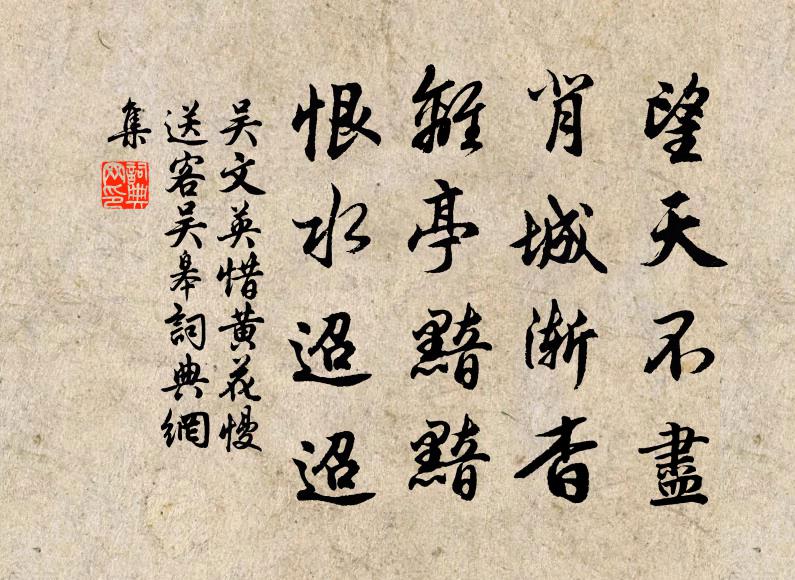 望天不盡
背城漸杳
離亭黯黯
恨水迢迢
吴文英惜黄花慢
送客吴皋詞典網
集
詞典
网印